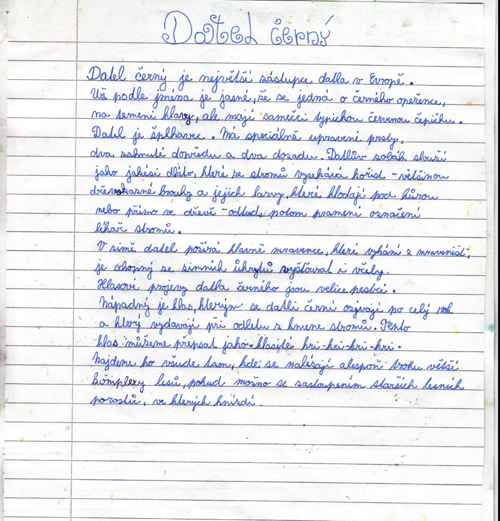 Datel černý
Datel černý je největší zástupce datla v Evropě.
Už podle jména je jasné, že se jedná o černého opeřence,
na temeni hlavy, ale mají samičci typickou červenou čepičku.
Datel je šplhavec. Má speciálně upravené prsty,
dva zahnuté dopředu a dva dozadu. Datlův zobák slouží
jako jakési dláto, které ze stromů vysekává kořist - většinou
dřevokazné brouky a jejich larvy, které hlodají pod kůrou
nebo přímo ve dřevě - odtud, potom pramení označení
lékař stromů.
V zimě datel požírá hlavně mravence, které vyhání z mravenišť,
je schopný ze zimních úkrytů vyšťourat i včely.
Hlasové projevy datla černého jsou velice pestré.
Nápadný je hlas, kterým se datli černí ozývají po celý rok
a který vydávají při odletu z kmene stromů. Tento
hlas můžeme přepsat jako hlasité kri-kri-kri-kri.
Najdeme ho všude tam, kde se nalézají alespoň trochu větší
komplexy lesů, pokud možno se zastoupením starších lesních
porostů, ve kterých hnízdí.